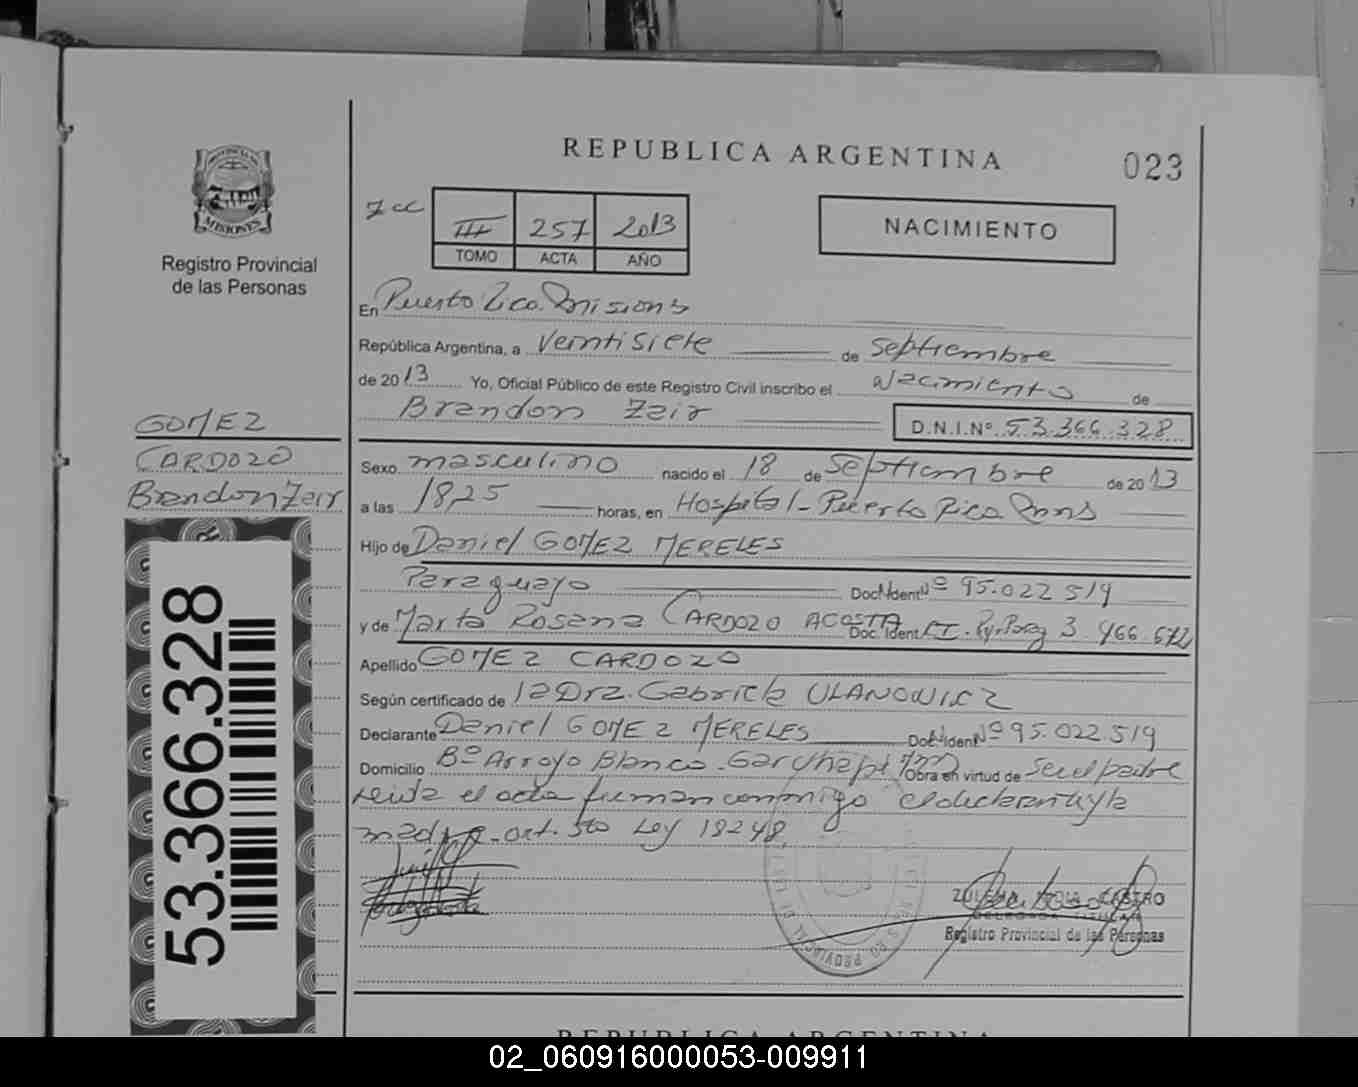 REPUBLICA ARGENTINA
023
PROVINCIA DE
MISIONES
Registro Provincial
de las Personas
7 cc
III 257 2013
TOMO ACTA AÑO
NACIMIENTO
En Puerto Rico. Misiones
República Argentina, a Veintisiete de Septiembre
de 2013 Yo, Oficial Público de este Registro Civil inscribo el Nacimiento de
Brandon Zair D.N.I.Nº 53.366.328
GOMEZ
CARDOZO
Brandon Zair
53.366.328
Sexo masculino nacido el 18 de Septiembre de 2013
a las 18,25 horas, en Hospital - Puerto Rico Mnes
Hijo de Daniel GOMEZ MERELES
Paraguayo Doc. Ident Nº 95.022.519
y de Marta Rosana CARDOZO ACOSTA Doc. Ident C.I. 3.466.672
Apellido GOMEZ CARDOZO
Según certificado de la Dra. Gabriela ULANOWICZ
Declarante Daniel GOMEZ MERELES Doc. Ident Nº 95.022.519
Domicilio Bº Arroyo Blanco - Garuhape Obra en virtud de ser el padre
leída el acta firman conmigo el declarante y la
madre. art. 5to Ley 18248.
REGISTRO PROVINCIAL DE LAS
CASTRO
DELEGADA TITULAR
Registro Provincial de las Personas
REPUBLICA ARGENTINA
02_060916000053-009911